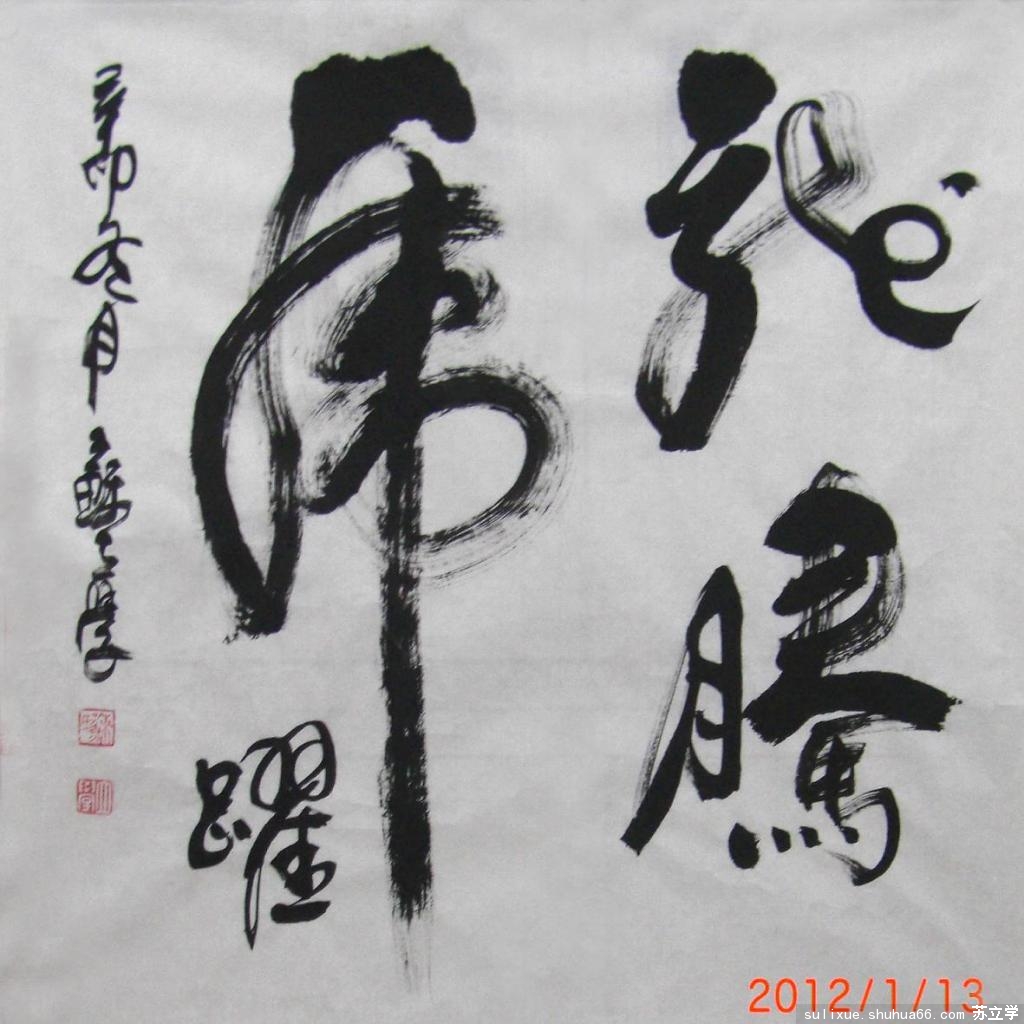 龍騰
虎躍
辛卯冬月 蘇立學
2012/1/13
sulixue.shuhua66.com 苏立学